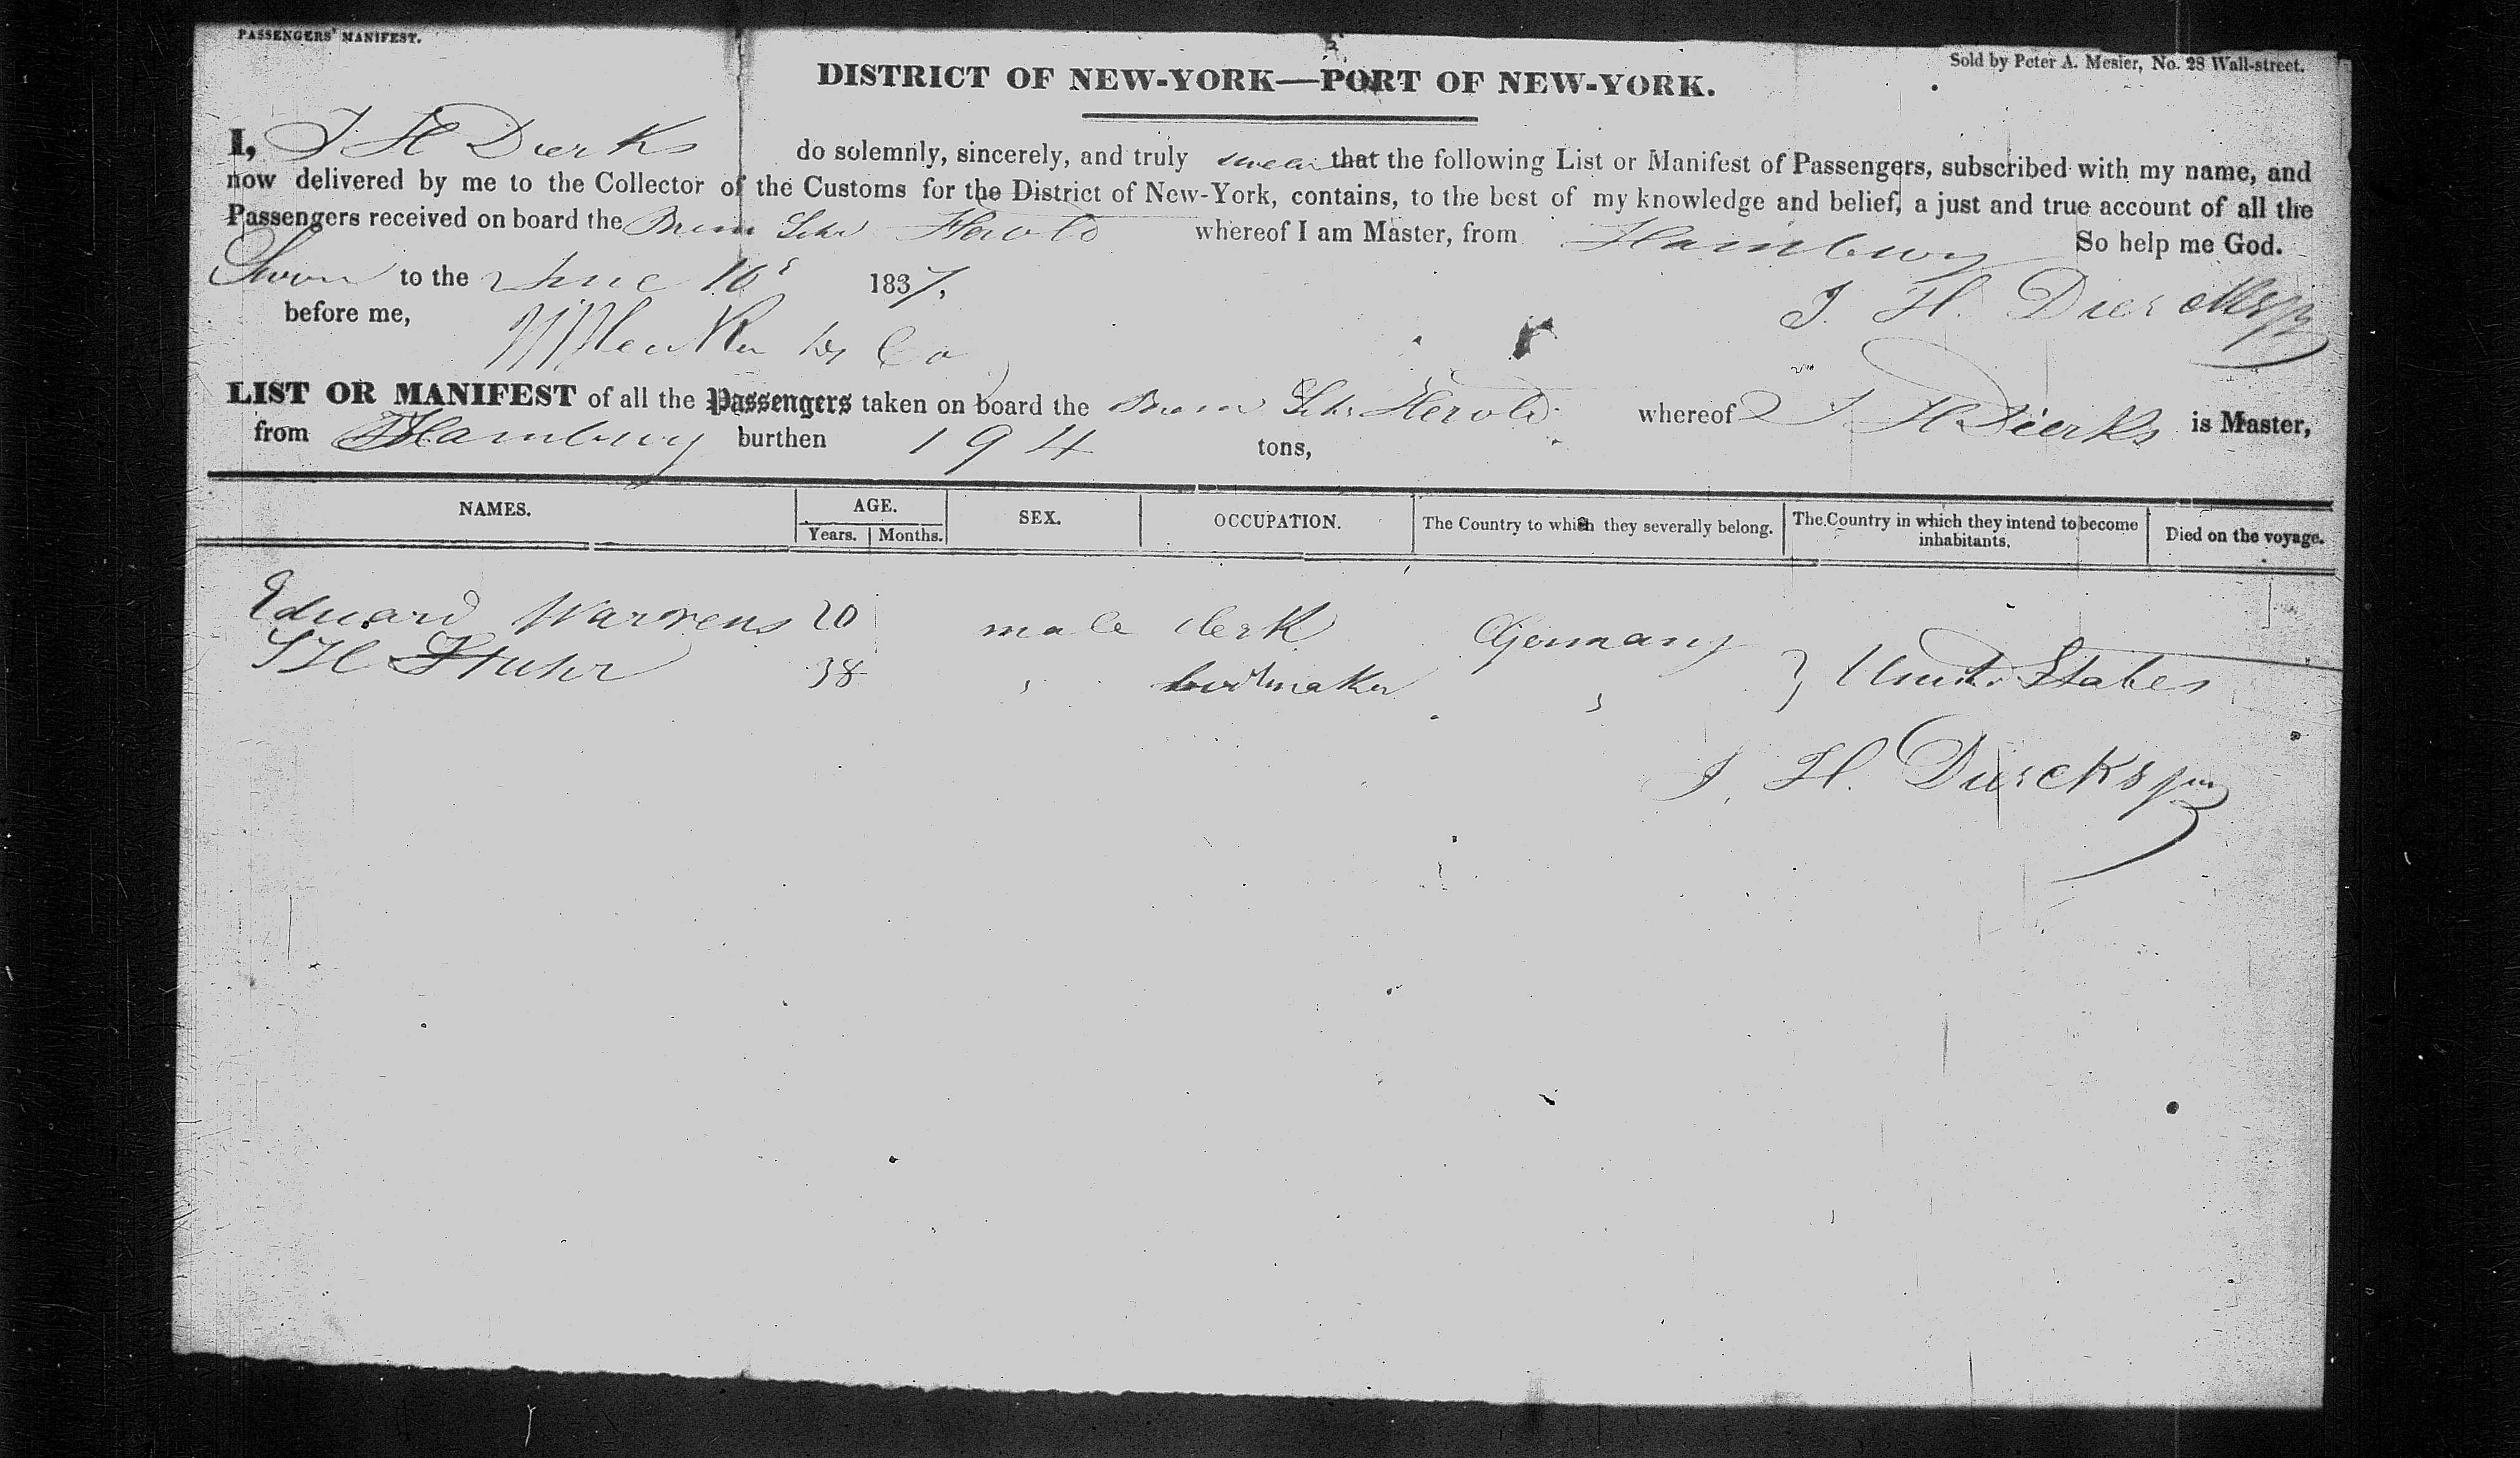 PASSENGERS' MANIFEST.
Sold by Peter A. Mesier, No. 28 Wall-street.
DISTRICT OF NEW-YORK—PORT OF NEW-YORK.
I, J H Dierks do solemnly, sincerely, and truly swear that the following List or Manifest of Passengers, subscribed with my name, and
now delivered by me to the Collector of the Customs for the District of New-York, contains, to the best of my knowledge and belief, a just and true account of all the
Passengers received on board the Brem Schr Herold whereof I am Master, from Hamburg So help me God.
Sworn to the June 16 1837.
before me, J. H. Diercks
LIST OR MANIFEST of all the Passengers taken on board the Brem Schr Herold whereof J H Dierks is Master,
from Hamburg burthen 194 tons,
NAMES. AGE. SEX. OCCUPATION. The Country to which they severally belong. The Country in which they intend to become inhabitants. Died on the voyage.
Years. Months.
Eduard Warrens 20 male clerk Germany
J H Stuhr 38 " bootmaker " } United States
J. H. Diercks jun